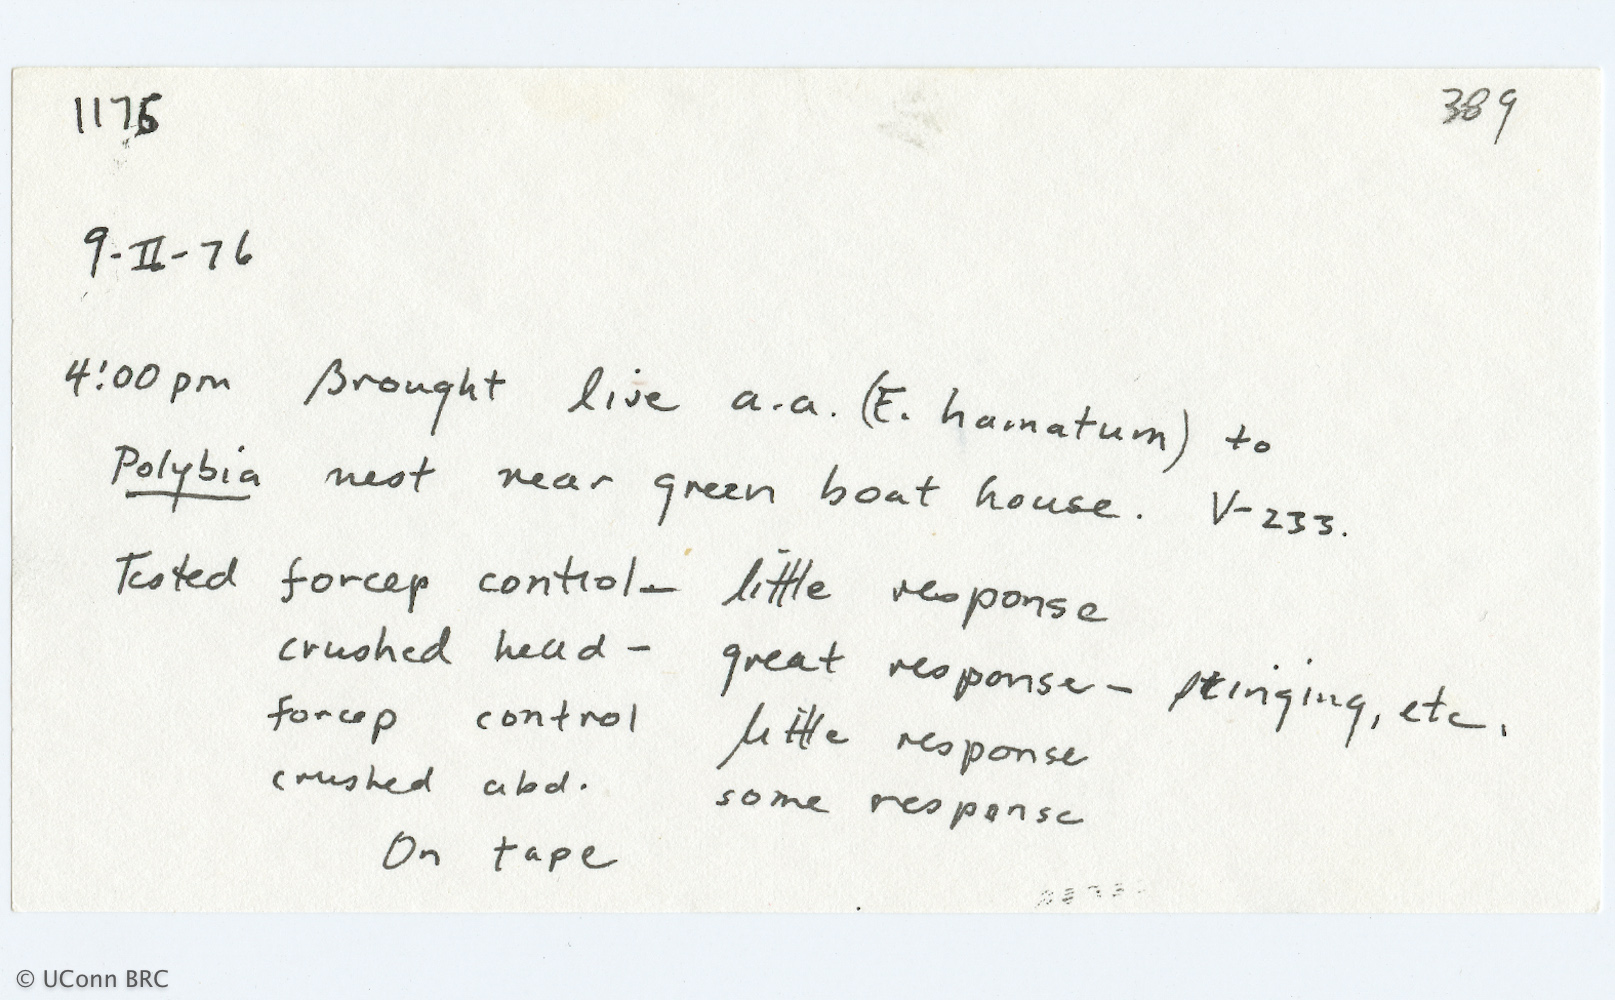 1175 389
9-II-76
4:00 pm Brought live a.a. (E. hamatum) to
Polybia nest near green boat house. V-233.
Tested forcep control - little response
crushed head - great response - stinging, etc.
forcep control little response
crushed abd. some response
On tape
© UConn BRC